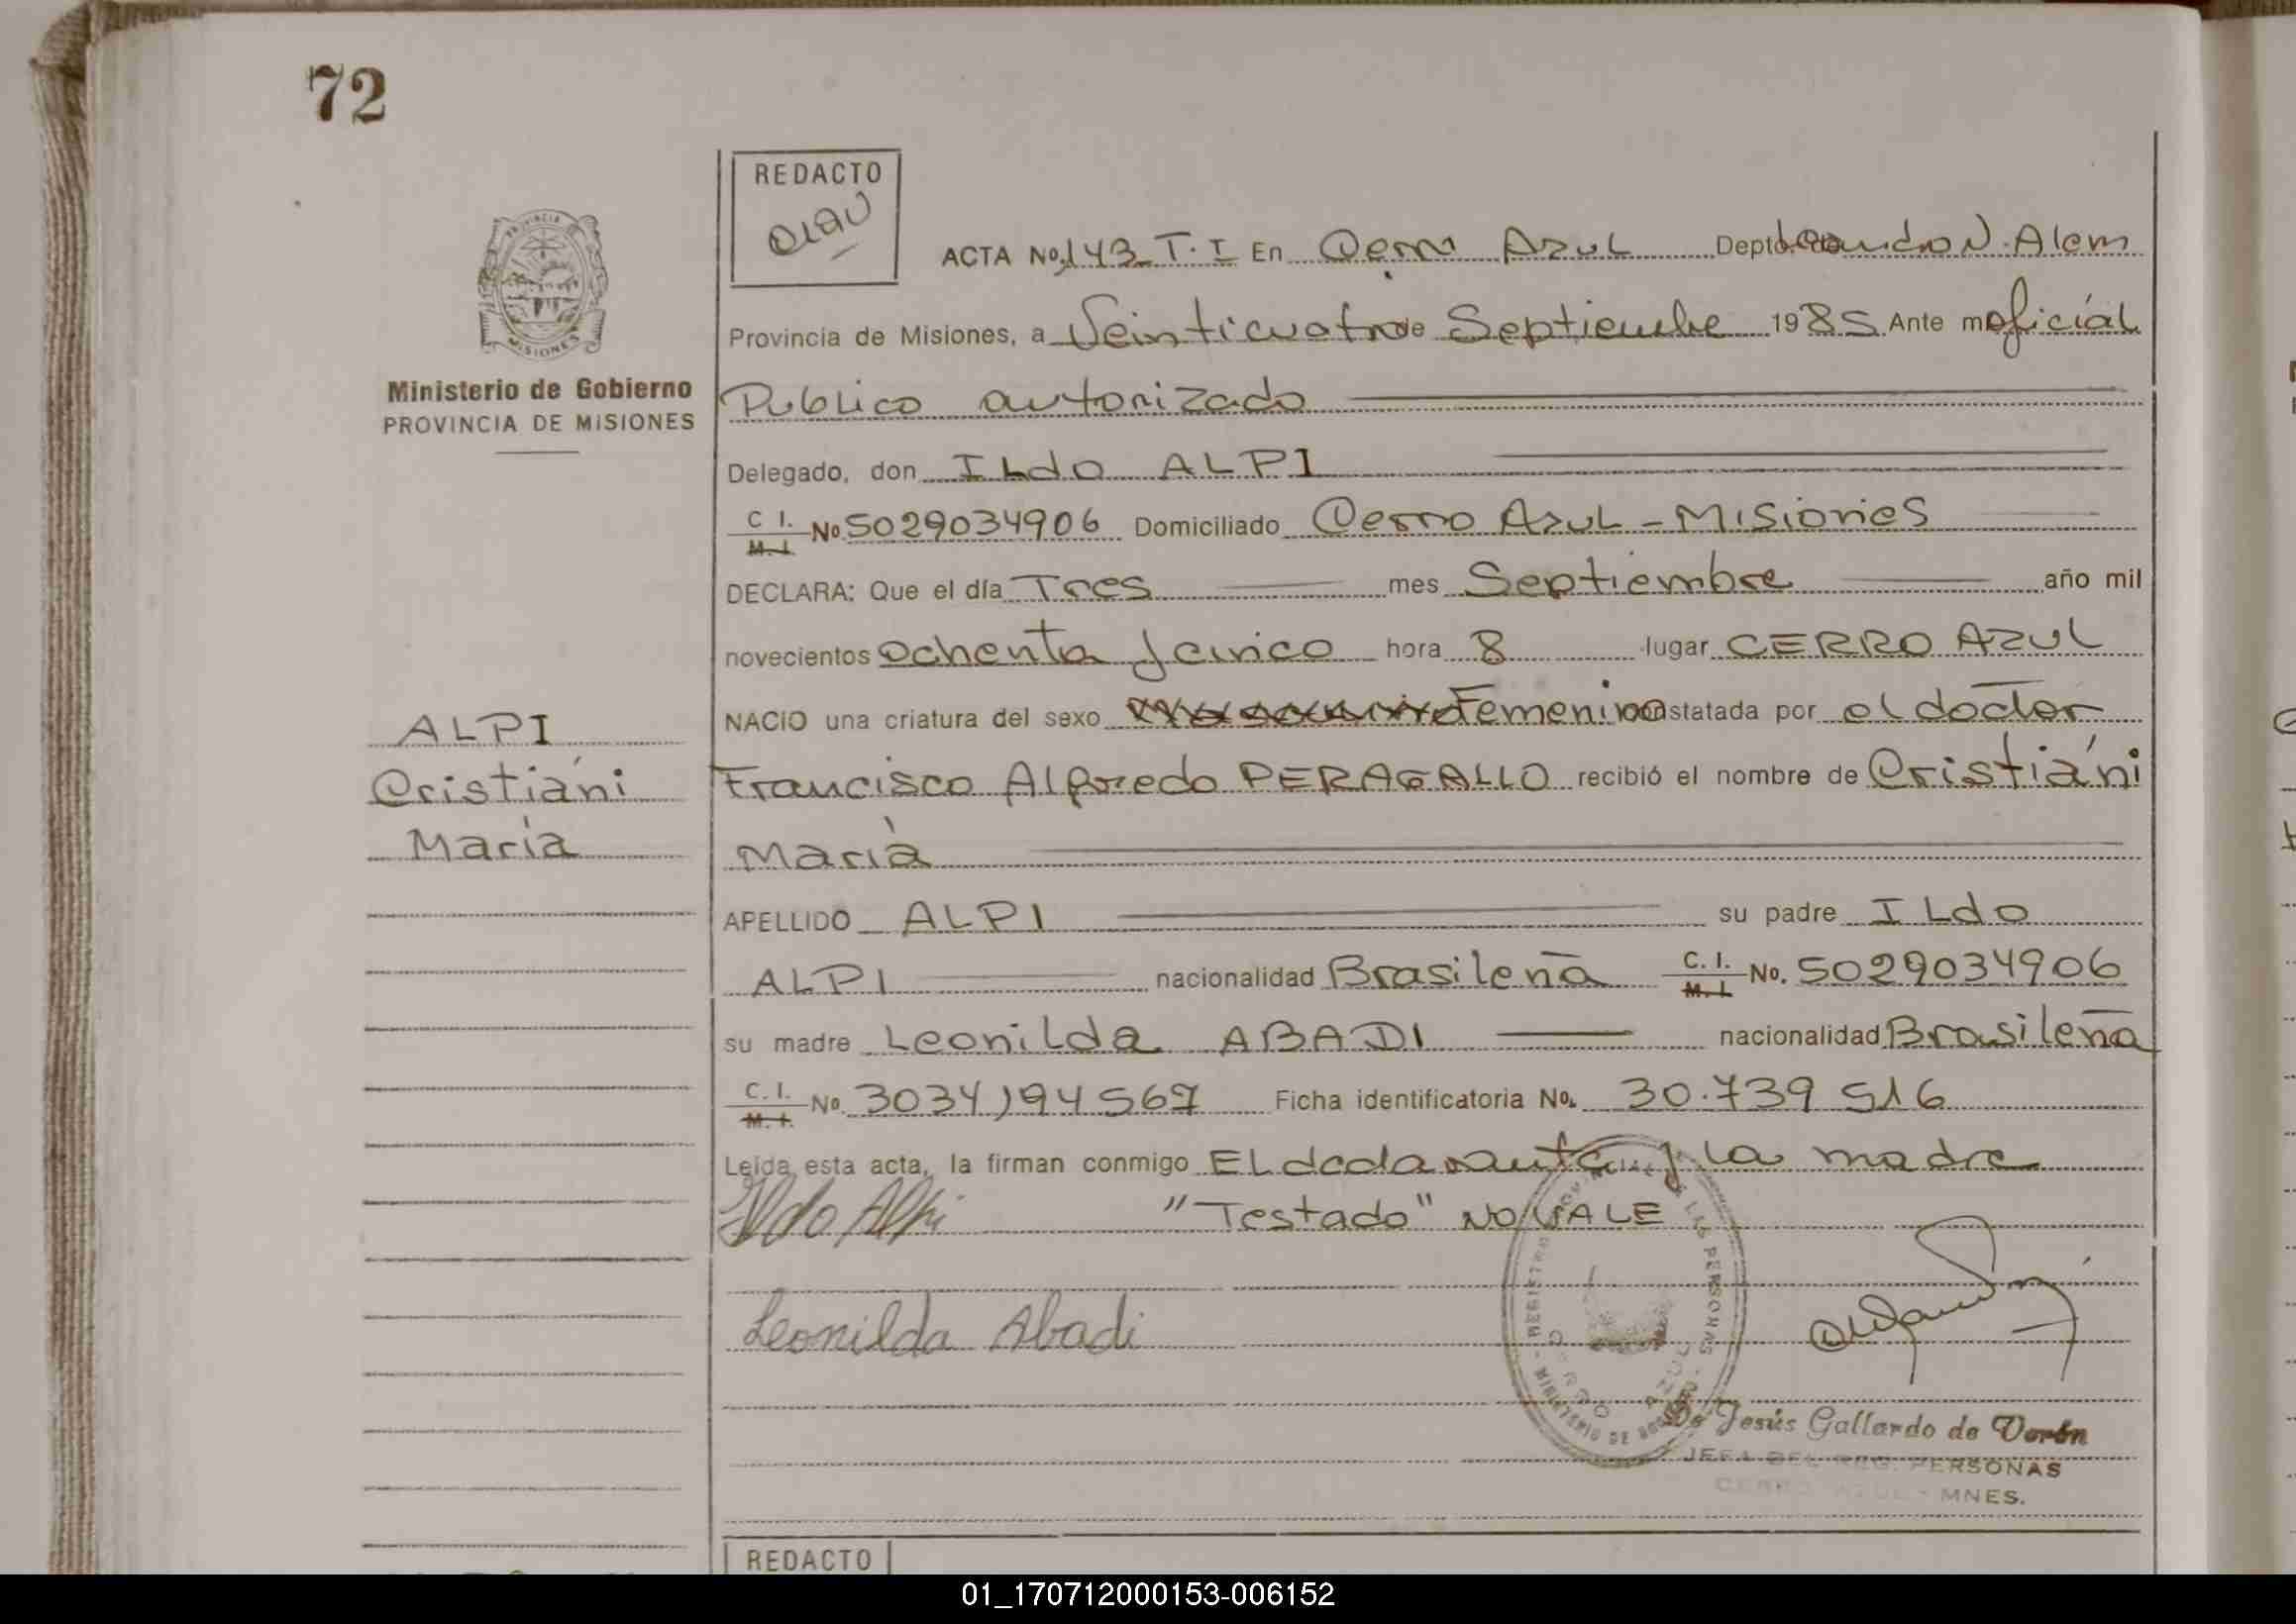 72
REDACTO
ACTA No. 143 T.I En Cerro Azul Depto. Leandro N. Alem
Provincia de Misiones, a Veinticuatro de Septiembre 1985 Ante mi oficial
Publico autorizado
Delegado, don ILdo ALPI
C I. M. I. No. 5029034906 Domiciliado Cerro Azul - Misiones
DECLARA: Que el día Tres mes Septiembre año mil
novecientos ochenta y cinco hora 8 lugar CERRO AZUL
NACIO una criatura del sexo Femenino constatada por el doctor
Francisco Alfredo PERAGALLO recibió el nombre de Cristiáni
María
APELLIDO ALPI su padre ILdo
ALPI nacionalidad Brasileña C. I. M. I. No. 5029034906
su madre Leonilda ABADI nacionalidad Brasileña
C. I. M. I. No. 3034194567 Ficha identificatoria No. 30.739 516
Leída esta acta, la firman conmigo EL declarante y la madre
Ildo Alpi "Testado" NO VALE
Leonilda Abadi
de Jesús Gallardo de Verón
JEFA DEL REG. PERSONAS
CERRO AZUL - MNES.
PROVINCIA
MISIONES
Ministerio de Gobierno
PROVINCIA DE MISIONES
ALPI
Cristiáni
María
REDACTO
01_170712000153-006152